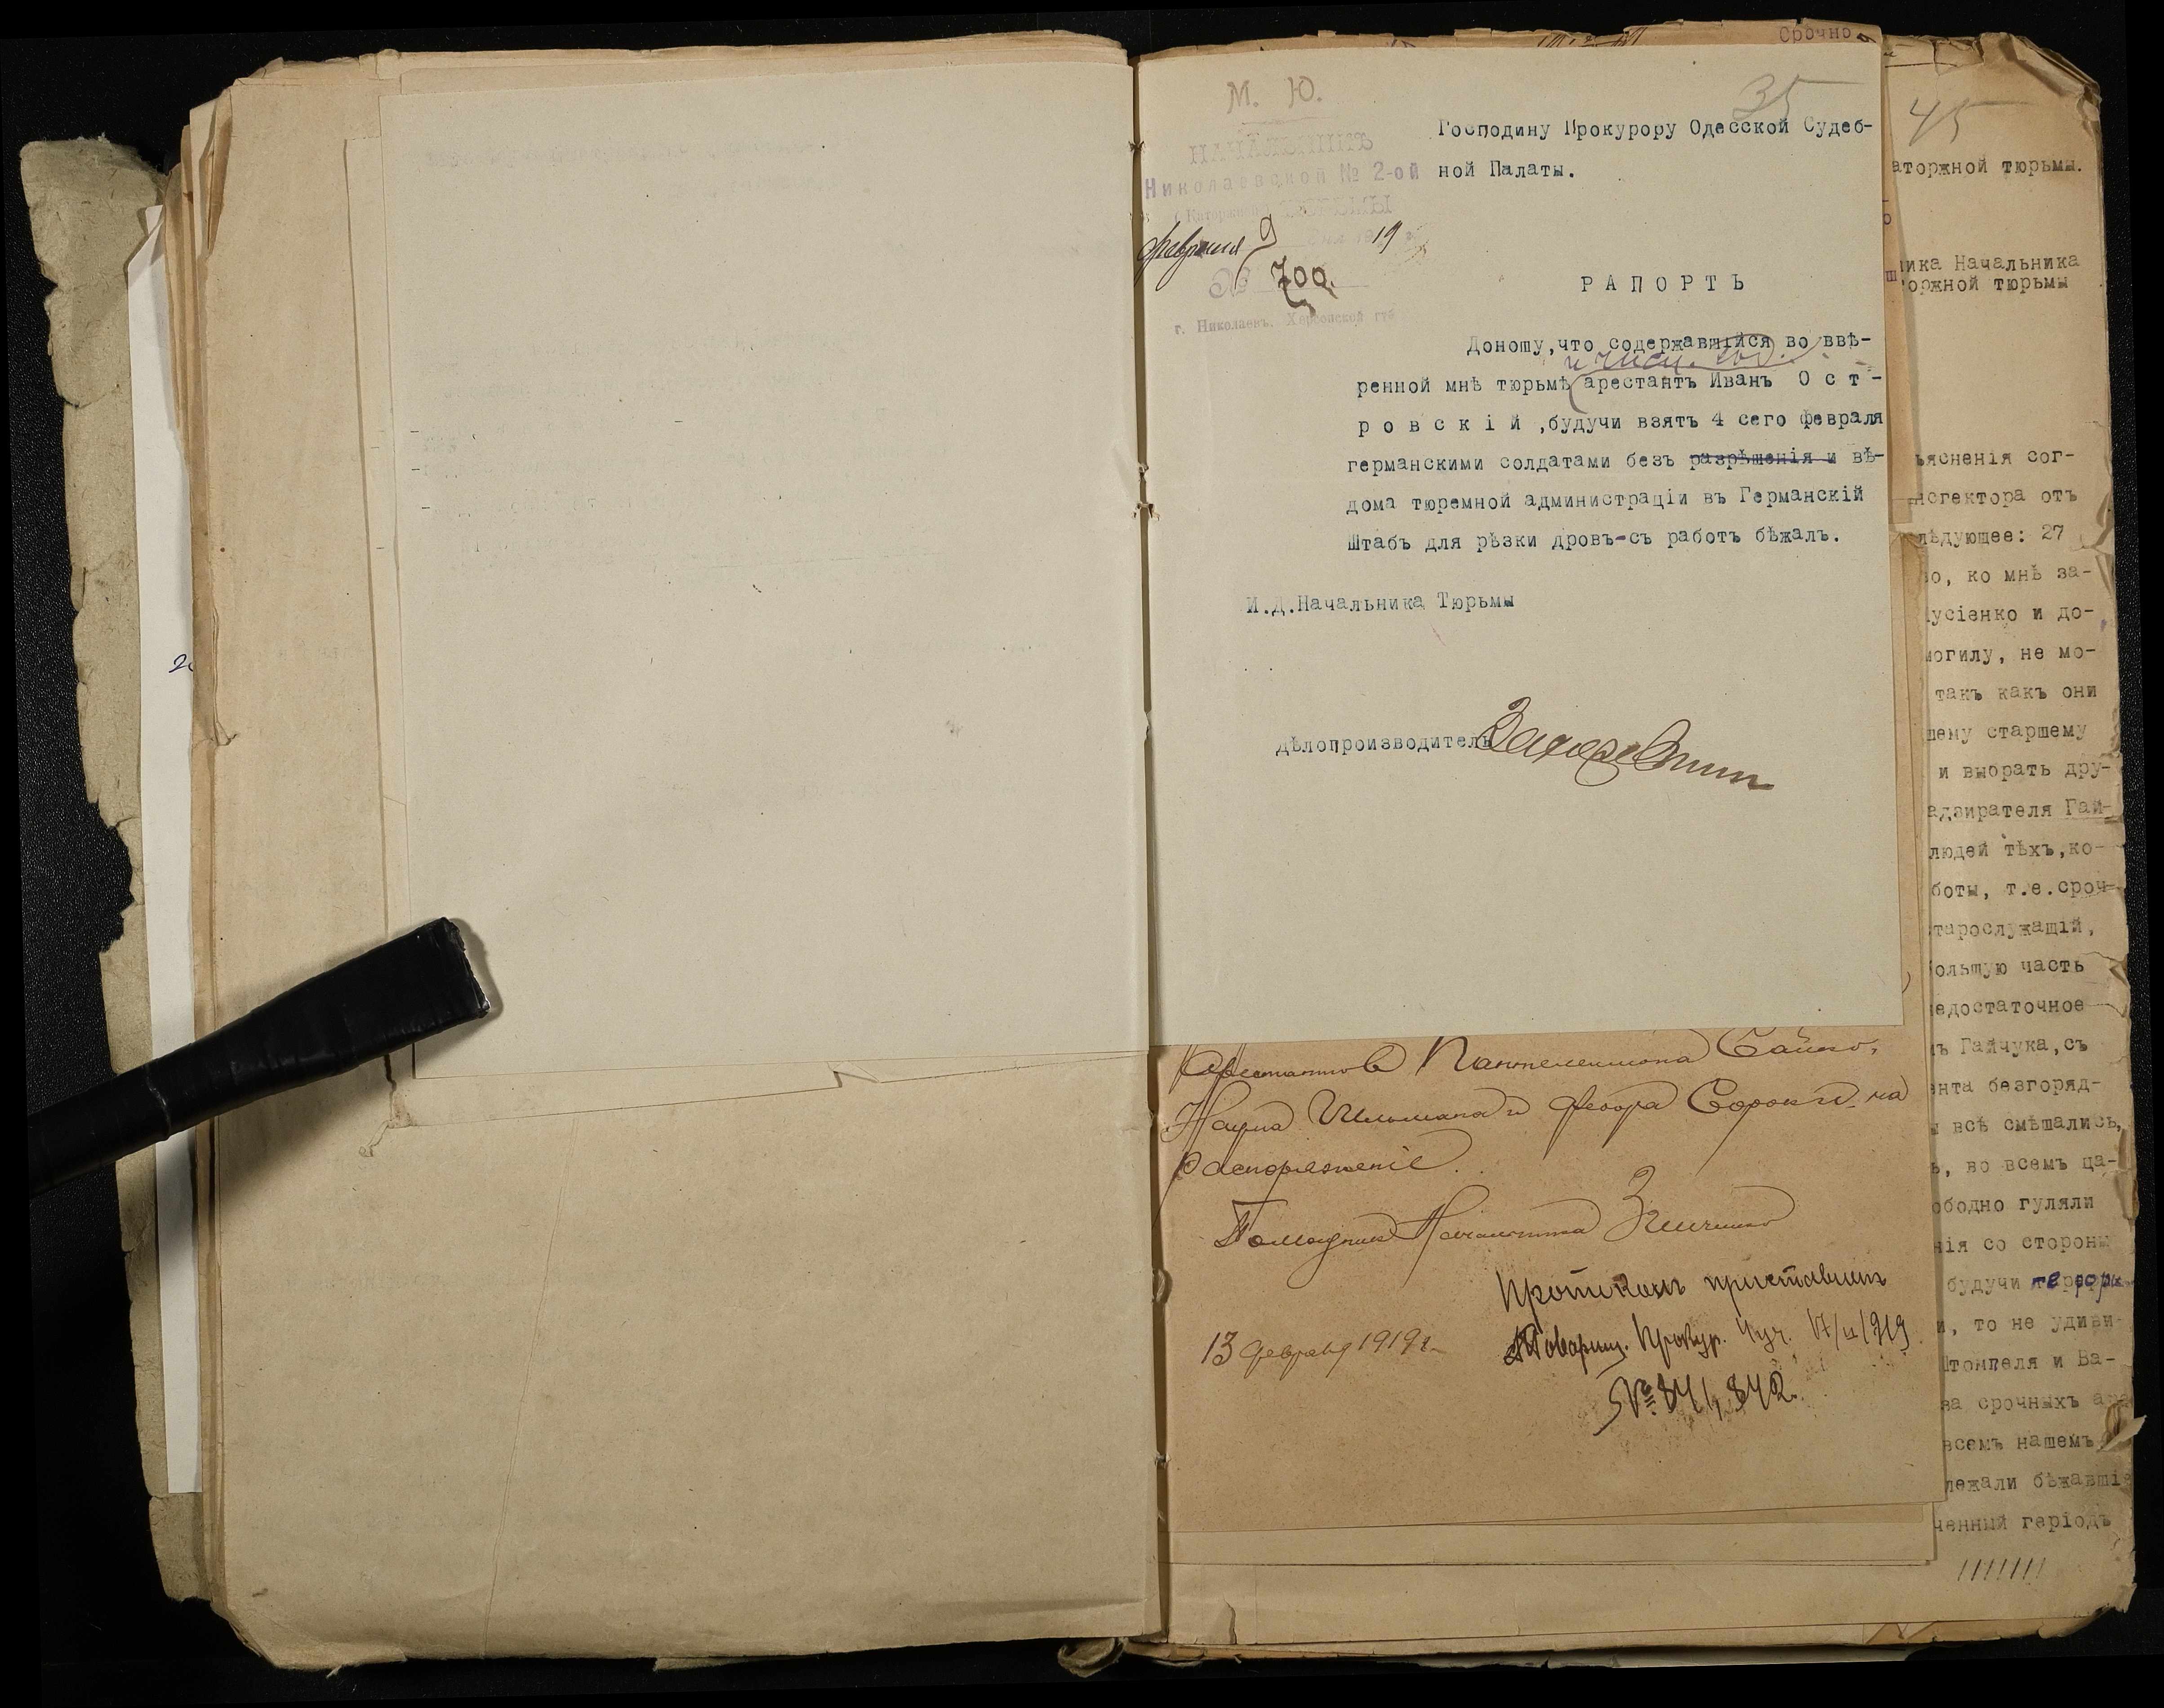 Срочно
35
М. Ю.
НАЧАЛЬНИКЪ
Николаевской № 2-ой
Каторжной ТЮРЬМЫ
февраля 9 дня 1919
№ 700.
г. Николаевъ, Херсонской губ
Господину Прокурору Одесской Судеб-
ной Палаты.
РАПОРТЪ
Доношу,что содержавшійся во ввѣ-
ренной мнѣ тюрьмѣ арестантъ Иванъ О с т -
р о в с к і й ,будучи взятъ 4 сего февраля
германскими солдатами безъ разрѣшенія и вѣ-
дома тюремной администраціи въ Германскій
Штабъ для рѣзки дровъ-съ работъ бѣжалъ.
И.Д.Начальника Тюрьмы
Дѣлопроизводитель
Арестантовъ Пантелеимона
и Федора Сороки на
распоряженіе.
Помощникъ Начальника
13 февраля 1919 г.
Протоколъ приставленъ
Товарищ. Прокур. 4 уч. 17/II 1919
№ 841, 842.
45
аторжной тюрьмы.
ника Начальника
оржной тюрьмы
ъясненія сог-
нспектора отъ
лѣдующее: 27
во, ко мнѣ за-
усіенко и до-
могилу, не мо-
такъ какъ они
шему старшему
и выбрать дру-
адзирателя Гай-
людей тѣхъ,ко-
боты, т.е.сроч-
тарослужащій,
ольшую часть
недостаточное
ъ Гайчука,съ
ента безпоряд-
ы всѣ смѣшались,
ь, во всемъ ца-
ободно гуляли
нія со стороны
будучи
и, то не удиви-
Штомпеля и Ва-
за срочныхъ
всемъ нашемъ
лежали бѣжавшіе
ченный періодъ